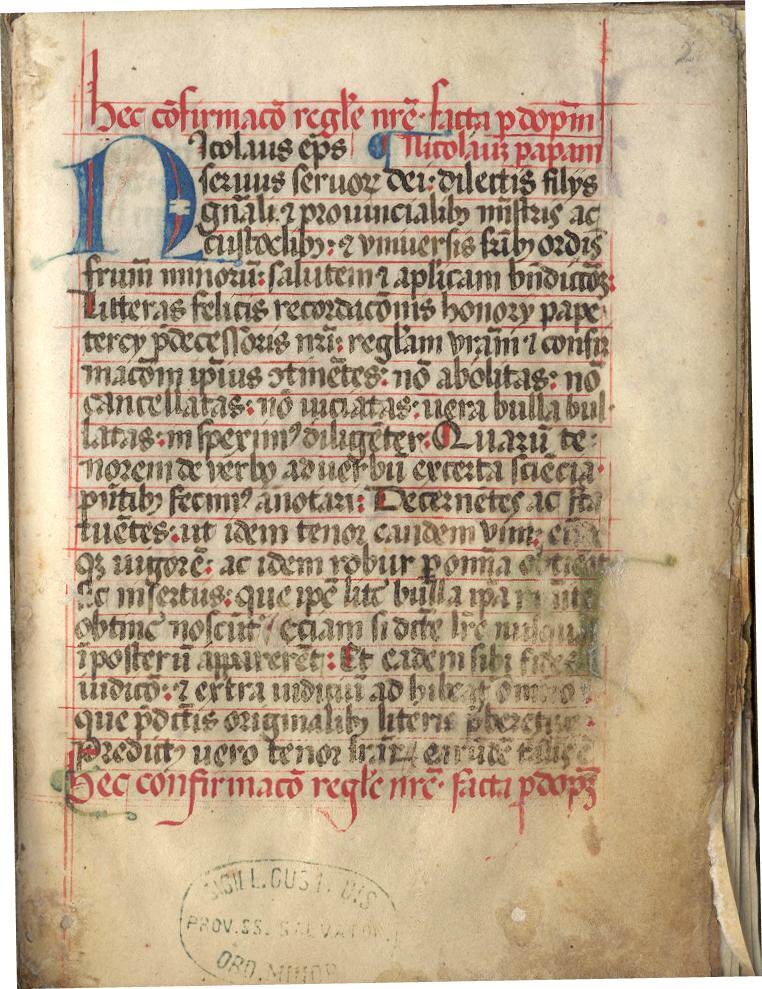 2
hec cōfirmacō regl̄e nrē· facta p dop̄m
Nicolaus ep̄s
Nicolauz papam
seruus seruoꝝ dei: dilectis filys
gn̄ali ⁊ prouincialibꝫ mīstris ac
custodibꝫ: ⁊ vniuersis frībꝫ ordīs
frum̄ minorū: salutem ⁊ ap̄licam bn̄dictōꝫ:
Litteras felicis recordacōnis honory pape
tercy p̄decessoris nrī: regl̄am vrām ⁊ confir
macōm ip̄ius ꝯtinētes: nō abolitas: nō
cancellatas: nō uiciatas: uera bulla bul·
latas: inspeximꝰ diligēter: Quarū te:
norem de verbo ad uerbū excerta sciēcia·
pn̄tibꝫ fecimꝰ anotari: Decernētes ac sta
tuētes: ut idem tenor eandem vim: eādē
qꝫ uigorē: ac idem robur p omnia obtineat
Ac insertus: que ip̄e litē bulla ip̄a
obtinē noscūt Eciam si dictē lr̄e
īposterū apparerēt: Et eadem sibi fides
iudicō: ⁊ extra iudiciū adhibeat̄ omnō:
que p̄dictis originalibꝫ literis
Predictꝫ uero tenor lrāꝝ earūdē talis ē
hec confirmacō regl̄e nrē· facta p dopꝫ
SIGILL. CUSTODIS
PROV. SS. SALVATOR.
ORD. MINOR